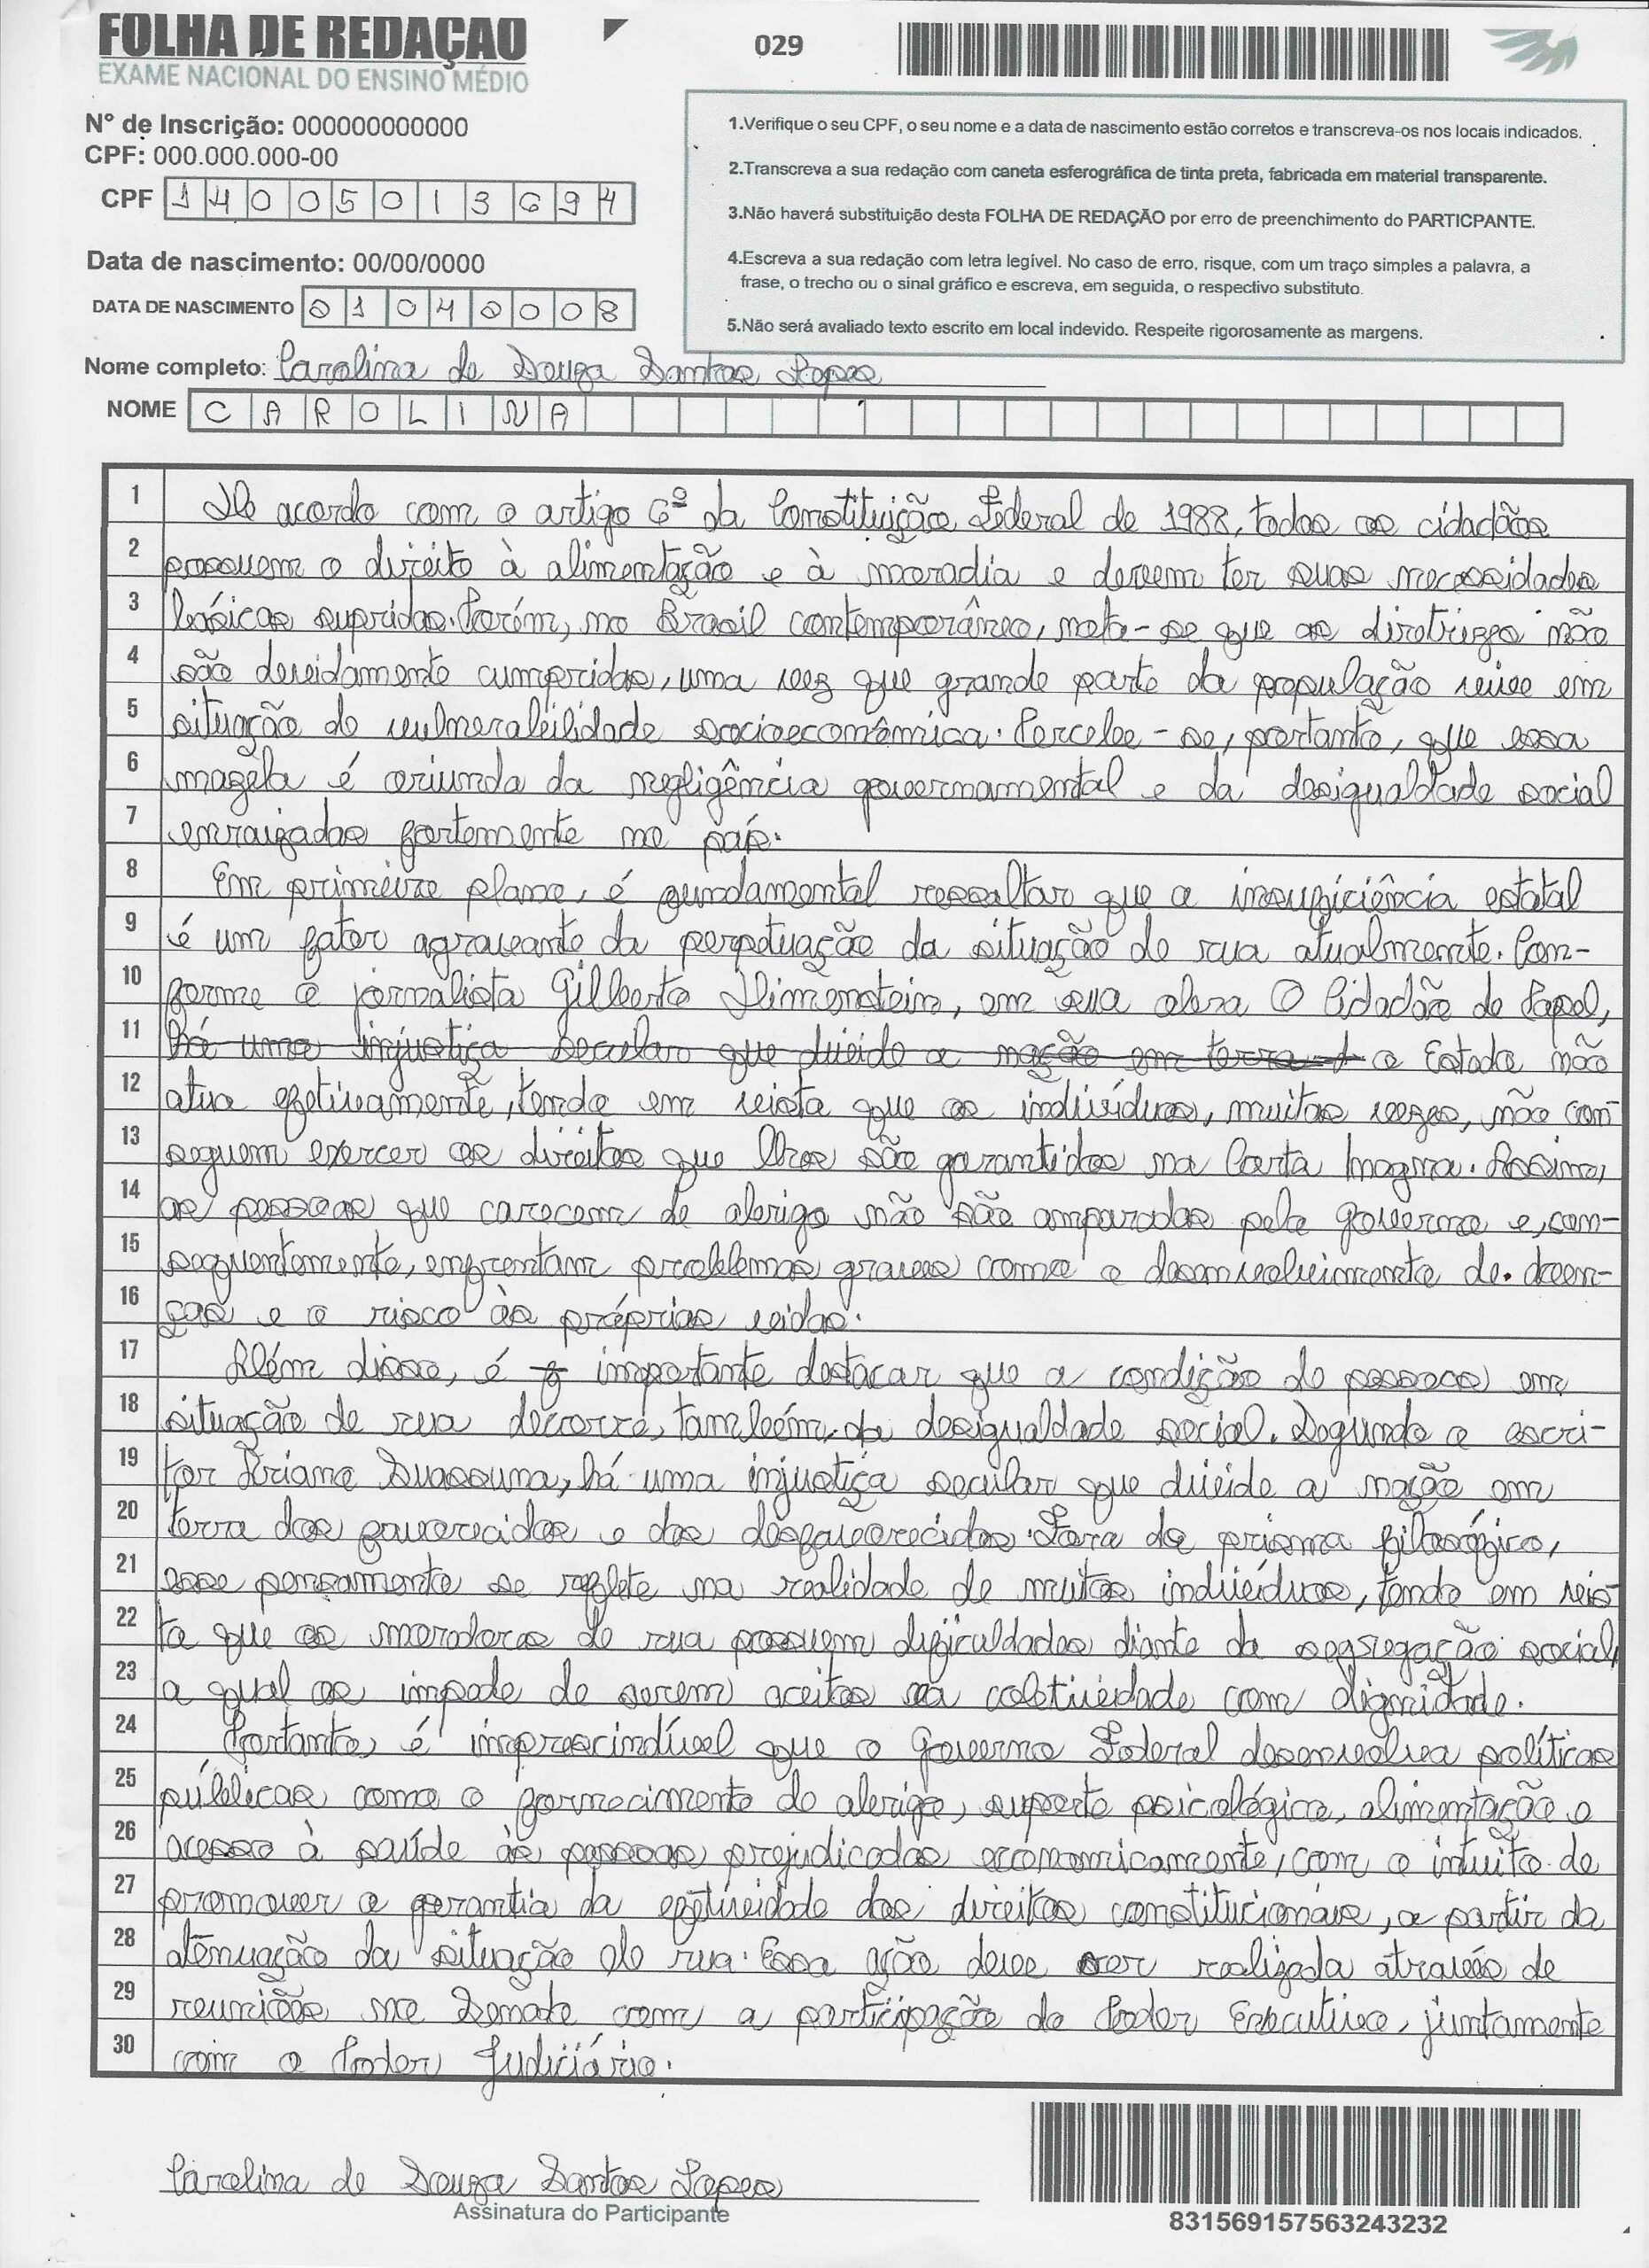 FOLHA DE REDAÇÃO
EXAME NACIONAL DO ENSINO MÉDIO
029
Nº de Inscrição: 000000000000
CPF: 000.000.000-00
CPF 14005013694
Data de nascimento: 00/00/0000
DATA DE NASCIMENTO 01042008
Nome completo: Carolina de Souza Santos Lopes
NOME CAROLINA
1.Verifique o seu CPF, o seu nome e a data de nascimento estão corretos e transcreva-os nos locais indicados.
2.Transcreva a sua redação com caneta esferográfica de tinta preta, fabricada em material transparente.
3.Não haverá substituição desta FOLHA DE REDAÇÃO por erro de preenchimento do PARTICPANTE.
4.Escreva a sua redação com letra legível. No caso de erro, risque, com um traço simples a palavra, a
frase, o trecho ou o sinal gráfico e escreva, em seguida, o respectivo substituto.
5.Não será avaliado texto escrito em local indevido. Respeite rigorosamente as margens.
1 De acordo com o artigo 6º da Constituição Federal de 1988, todos os cidadãos
2 possuem o direito à alimentação e à moradia e devem ter suas necessidades
3 básicas supridas. Porém, no Brasil contemporâneo, nota-se que as diretrizes não
4 são devidamente cumpridas, uma vez que grande parte da população vive em
5 situação de vulnerabilidade socioeconômica. Percebe-se, portanto, que essa
6 mazela é oriunda da negligência governamental e da desigualdade social
7 enraizadas fortemente no país.
8 Em primeiro plano, é fundamental ressaltar que a insuficiência estatal
9 é um fator agravante da perpetuação da situação de rua atualmente. Con-
10 forme o jornalista Gilberto Dimenstein, em sua obra O Cidadão de Papel,
11 há uma injustiça secular que divide a nação em terra d o Estado não
12 atua efetivamente, tendo em vista que os indivíduos, muitas vezes, não con-
13 seguem exercer os direitos que lhes são garantidos na Carta Magna. Assim,
14 as pessoas que carecem de abrigo não são amparadas pelo governo e, con-
15 sequentemente, enfrentam problemas graves como o desenvolvimento de doen-
16 ças e o risco às próprias vidas.
17 Além disso, é importante destacar que a condição de pessoas em
18 situação de rua decorre, também, da desigualdade social. Segundo o escri-
19 tor Ariano Suassuna, há uma injustiça secular que divide a nação em
20 terra dos favorecidos e dos desfavorecidos. Fora do prisma filosófico,
21 esse pensamento se reflete na realidade de muitos indivíduos, tendo em vis-
22 ta que os moradores de rua possuem dificuldades diante da segregação social,
23 a qual os impede de serem aceitos na coletividade com dignidade.
24 Portanto, é imprescindível que o Governo Federal desenvolva políticas
25 públicas como o fornecimento de abrigo, suporte psicológico, alimentação e
26 acesso à saúde às pessoas prejudicadas economicamente, com o intuito de
27 promover a garantia da efetividade dos direitos constitucionais, a partir da
28 atenuação da situação de rua. Essa ação deve ser realizada através de
29 reuniões no Senado com a participação do Poder Executivo, juntamente
30 com o Poder Judiciário.
Carolina de Souza Santos Lopes
Assinatura do Participante
831569157563243232